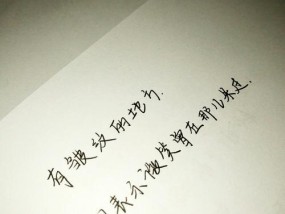 有皱纹的地方.
表示微笑曾在那儿呆过.